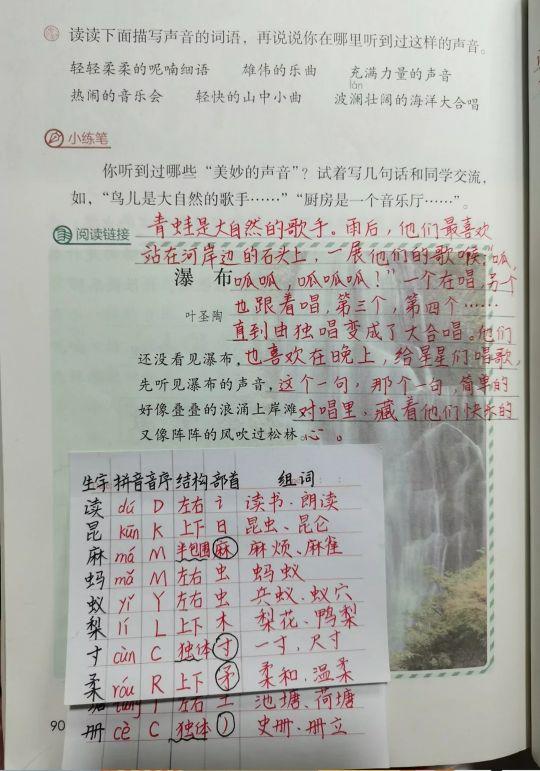 读读下面描写声音的词语，再说说你在哪里听到过这样的声音。
轻轻柔柔的呢喃细语 雄伟的乐曲 充满力量的声音
lán
热闹的音乐会 轻快的山中小曲 波澜壮阔的海洋大合唱
小练笔
你听到过哪些“美妙的声音”？试着写几句话和同学交流，
如，“鸟儿是大自然的歌手……”“厨房是一个音乐厅……”。
阅读链接
青蛙是大自然的歌手。雨后，他们最喜欢
站在河岸边的石头上，一展他们的歌喉：“呱，
瀑布
呱呱，呱呱呱呱！”一个在唱，另个
也跟着唱，第三个，第四个……
叶圣陶
直到由独唱变成了大合唱。他们
还没看见瀑布，
也喜欢在晚上，给星星们唱歌，
先听见瀑布的声音，
这个一句，那个一句，简单的
好像叠叠的浪涌上岸滩，
对唱里，藏着他们快乐的
又像阵阵的风吹过松林。
心。
生字 拼音 音序 结构 部首 组词：
读 dú D 左右 讠 读书、朗读
昆 kūn K 上下 日 昆虫、昆仑
麻 má M 半包围 麻 麻烦、麻雀
蚂 mǎ M 左右 虫 蚂蚁
蚁 yǐ Y 左右 虫 兵蚁、蚁穴
梨 lí L 上下 木 梨花、鸭梨
寸 cùn C 独体 寸 一寸，尺寸
柔 róu R 上下 矛 柔和，温柔
塘 táng T 左右 土 池塘、荷塘
册 cè C 独体 丿 史册、册立
90